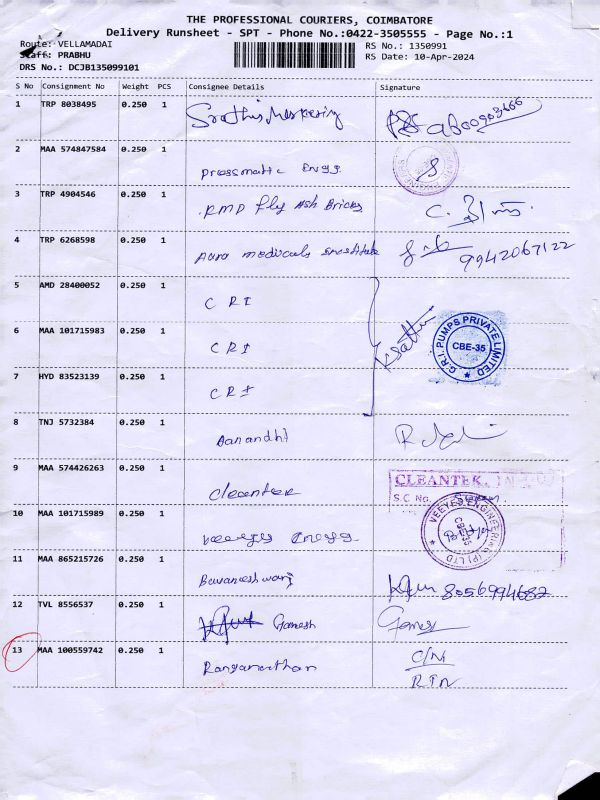 THE PROFESSIONAL COURIERS, COIMBATORE
Delivery Runsheet - SPT - Phone No.:0422-3505555 - Page No.:1
Route: VELLAMADAI
Staff: PRABHU
DRS No.: DCJB135099101
RS No.: 1350991
RS Date: 10-Apr-2024
S No Consignment No Weight PCS Consignee Details Signature
1 TRP 8038495 0.250 1
2 MAA 574847584 0.250 1 pressmatic Engg
3 TRP 4904546 0.250 1 RMP fly Ash Bricks
4 TRP 6268598 0.250 1 medicals 9942067122
5 AMD 28400052 0.250 1 CRI
6 MAA 101715983 0.250 1 CRI
C.R.I. PUMPS PRIVATE LIMITED
CBE-35
7 HYD 83523139 0.250 1 CRI
8 TNJ 5732384 0.250 1 Aanandhi
9 MAA 574426263 0.250 1 Cleantek
CLEANTEK
S.C. No.
10 MAA 101715989 0.250 1
VEEYES ENGINEERING (P) LTD
11 MAA 865215726 0.250 1 Bavaneshwari 8056994687
12 TVL 8556537 0.250 1 Ganesh
13 MAA 100559742 0.250 1 Ranganathan C/N
RTN